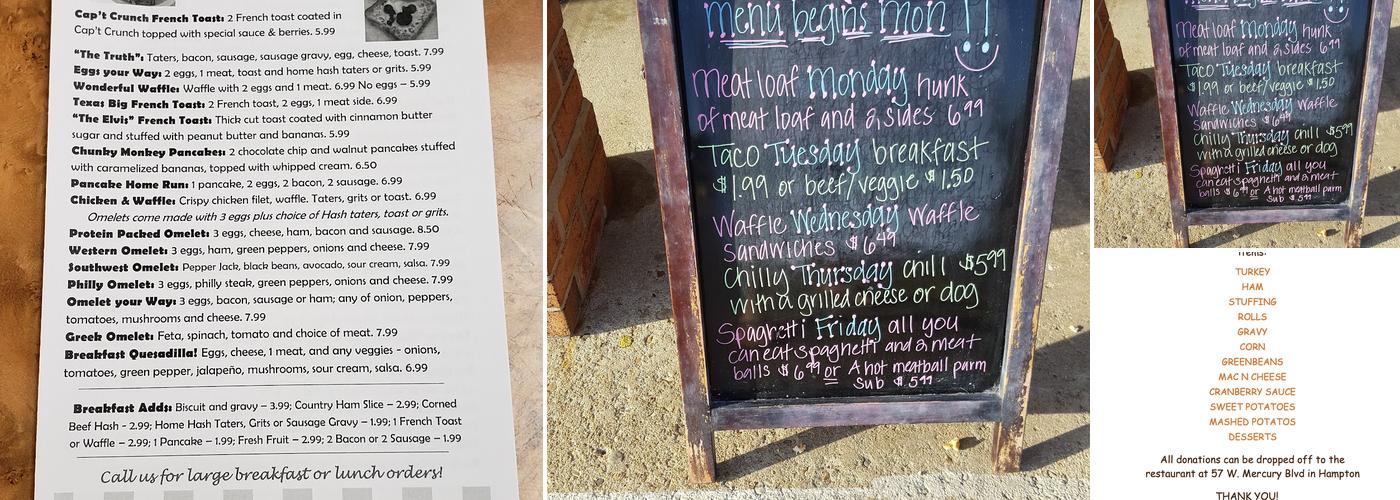 Cap't Crunch French Toast: 2 French toast coated in
Cap't Crunch topped with special sauce & berries. 5.99
"The Truth": Taters, bacon, sausage, sausage gravy, egg, cheese, toast. 7.99
Eggs your Way: 2 eggs, 1 meat, toast and home hash taters or grits. 5.99
Wonderful Waffle: Waffle with 2 eggs and 1 meat. 6.99 No eggs – 5.99
Texas Big French Toast: 2 French toast, 2 eggs, 1 meat side. 6.99
"The Elvis" French Toast: Thick cut toast coated with cinnamon butter
sugar and stuffed with peanut butter and bananas. 5.99
Chunky Monkey Pancakes: 2 chocolate chip and walnut pancakes stuffed
with caramelized bananas, topped with whipped cream. 6.50
Pancake Home Run: 1 pancake, 2 eggs, 2 bacon, 2 sausage. 6.99
Chicken & Waffle: Crispy chicken filet, waffle. Taters, grits or toast. 6.99
Omelets come made with 3 eggs plus choice of Hash taters, toast or grits.
Protein Packed Omelet: 3 eggs, cheese, ham, bacon and sausage. 8.50
Western Omelet: 3 eggs, ham, green peppers, onions and cheese. 7.99
Southwest Omelet: Pepper Jack, black beans, avocado, sour cream, salsa. 7.99
Philly Omelet: 3 eggs, philly steak, green peppers, onions and cheese. 7.99
Omelet your Way: 3 eggs, bacon, sausage or ham; any of onion, peppers,
tomatoes, mushrooms and cheese. 7.99
Greek Omelet: Feta, spinach, tomato and choice of meat. 7.99
Breakfast Quesadilla! Eggs, cheese, 1 meat, and any veggies - onions,
tomatoes, green pepper, jalapeño, mushrooms, sour cream, salsa. 6.99
Breakfast Adds: Biscuit and gravy – 3.99; Country Ham Slice – 2.99; Corned
Beef Hash - 2.99; Home Hash Taters, Grits or Sausage Gravy – 1.99; 1 French Toast
or Waffle – 2.99; 1 Pancake – 1.99; Fresh Fruit – 2.99; 2 Bacon or 2 Sausage – 1.99
Call us for large breakfast or lunch orders!
menu begins mon !!
Meatloaf Monday hunk
of meat loaf and 2 sides 6.99
Taco Tuesday breakfast
$1.99 or beef/veggie $1.50
Waffle Wednesday Waffle
Sandwiches $6.49
Chilly Thursday chili $5.99
with a grilled cheese or dog
Spaghetti Friday all you
can eat spaghetti and 2 meat
balls $6.99 or A hot meatball parm
Sub $5.99
Meatloaf Monday hunk
of meat loaf and 2 sides 6.99
Taco Tuesday breakfast
$1.99 or beef/veggie $1.50
Waffle Wednesday Waffle
Sandwiches $6.49
Chilly Thursday chili $5.99
with a grilled cheese or dog
Spaghetti Friday all you
can eat spaghetti and 2 meat
balls $6.99 or A hot meatball parm
Sub $5.99
items:
TURKEY
HAM
STUFFING
ROLLS
GRAVY
CORN
GREENBEANS
MAC N CHEESE
CRANBERRY SAUCE
SWEET POTATOES
MASHED POTATOS
DESSERTS
All donations can be dropped off to the
restaurant at 57 W. Mercury Blvd in Hampton
THANK YOU!